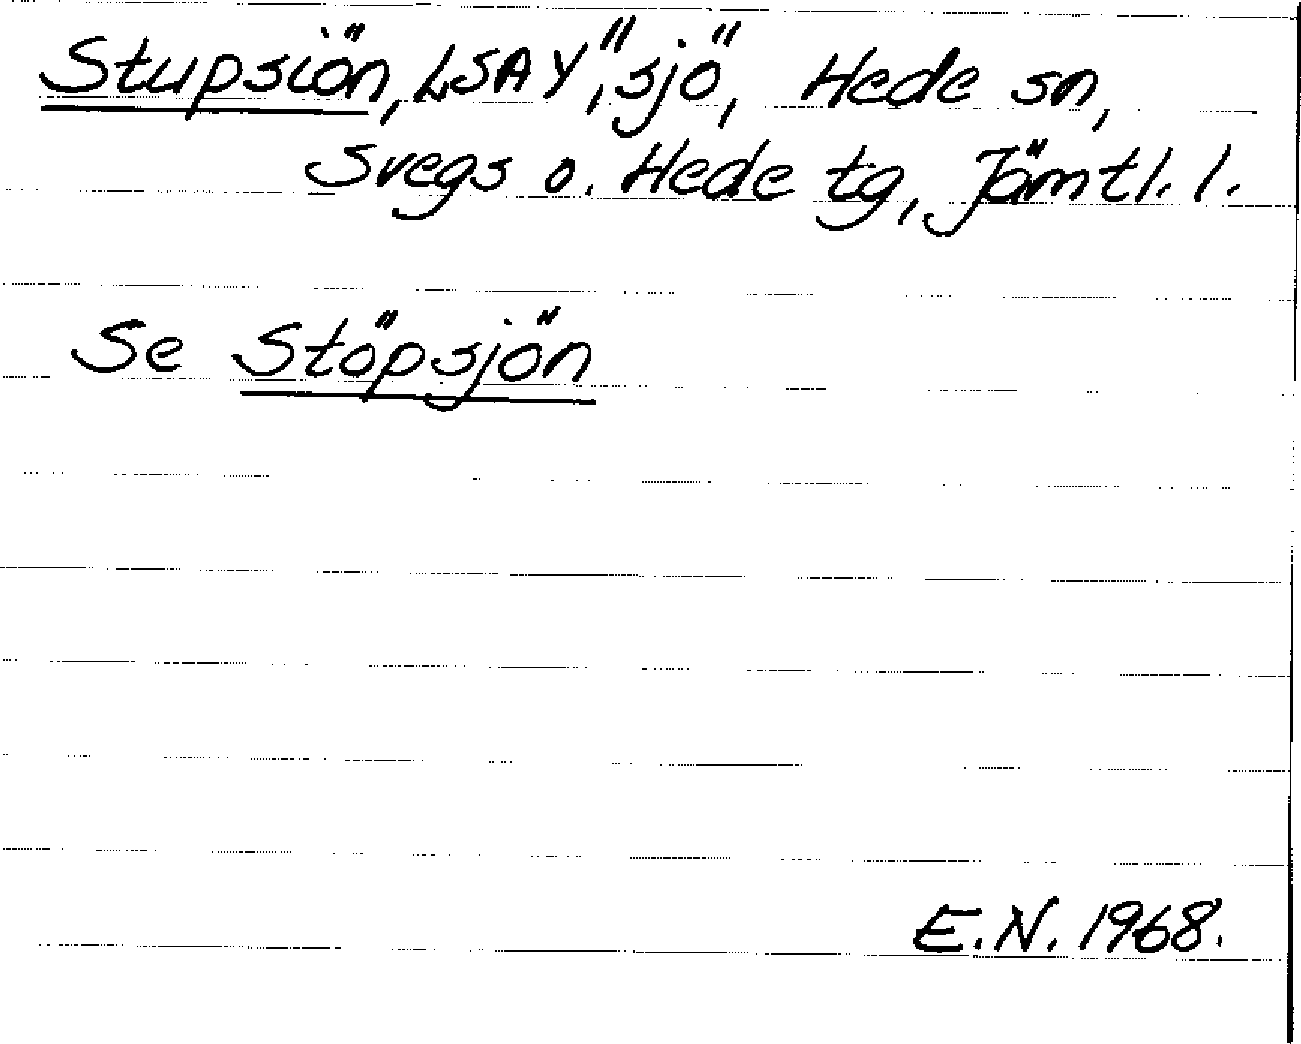 Stupsiön, LSA Y", sjö, Hede sn,
Svegs o. Hede tg, Jämtl. l.
Se Stöpsjön
E.N. 1968.